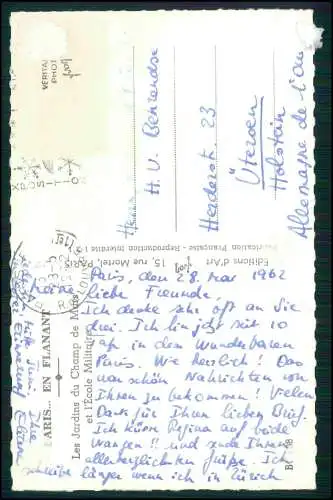 Paris, den 28. Mai 1962
Meine
liebe Freunde,
Ich denke sehr oft an Sie
drei. Ich bin ja seit 10
in dem wunderbaren
Paris. Wie herrlich! Das
war schön Nachrichten von
Ihnen zu bekommen! Vielen
Dank für Ihren lieben Brief.
Ich küsse Regina auf beide
Wangen!! und sende Ihnen
allerherzlichsten Grüße. Ich
schreibe länger wenn ich in Zürich
Mitte Juni. Ihre
Herrn
H. U. Behrendsen
Herderstr. 23
Üterson
Holstein
Allemagne de l'ou
VÉRITABLE
PHOTO
Éditions d'Art yvon 15, rue Martel, PARIS
Fabrication Française - Reproduction interdite
PARIS... EN FLANANT
Les Jardins du Champ de Mars
et l'École Militaire